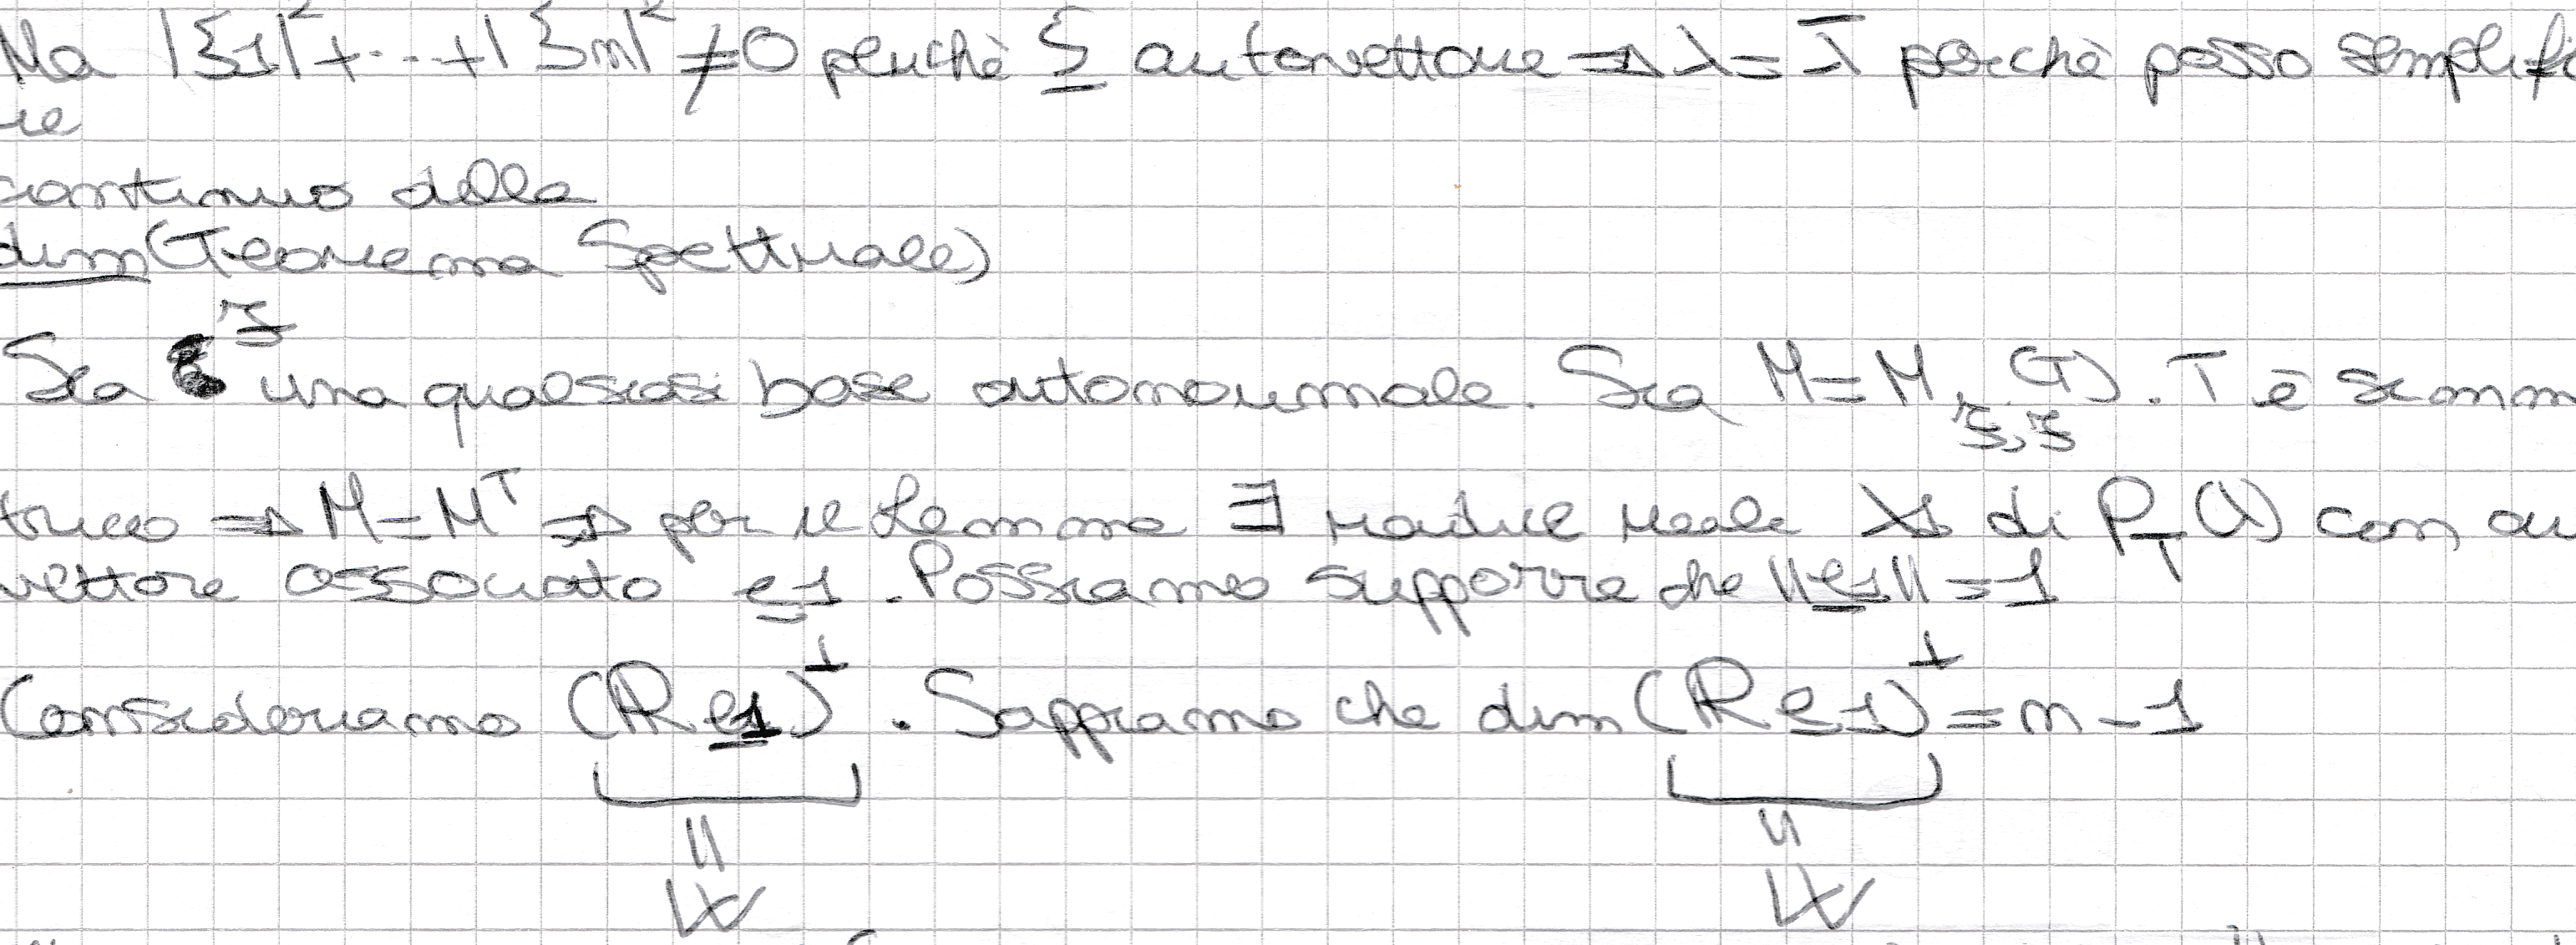 Ma |ξ1|²+...+|ξn|² ≠ 0 perchè ξ autovettore ⇒ λ = λ̅ perchè posso semplifi
re
continuo della
dim(Teorema Spettrale)
Sia 𝔉 una qualsiasi base ortonormale. Sia M=M𝔉,𝔉(T). T è simm
trico ⇒ M=Mᵀ ⇒ per il Lemma ∃ radice reale λ1 di P_T(λ) con au
vettore associato e1. Possiamo supporre che ||e1||=1
Consideriamo (ℝe1)⊥. Sappiamo che dim(ℝe1)⊥=n-1
= =
W W